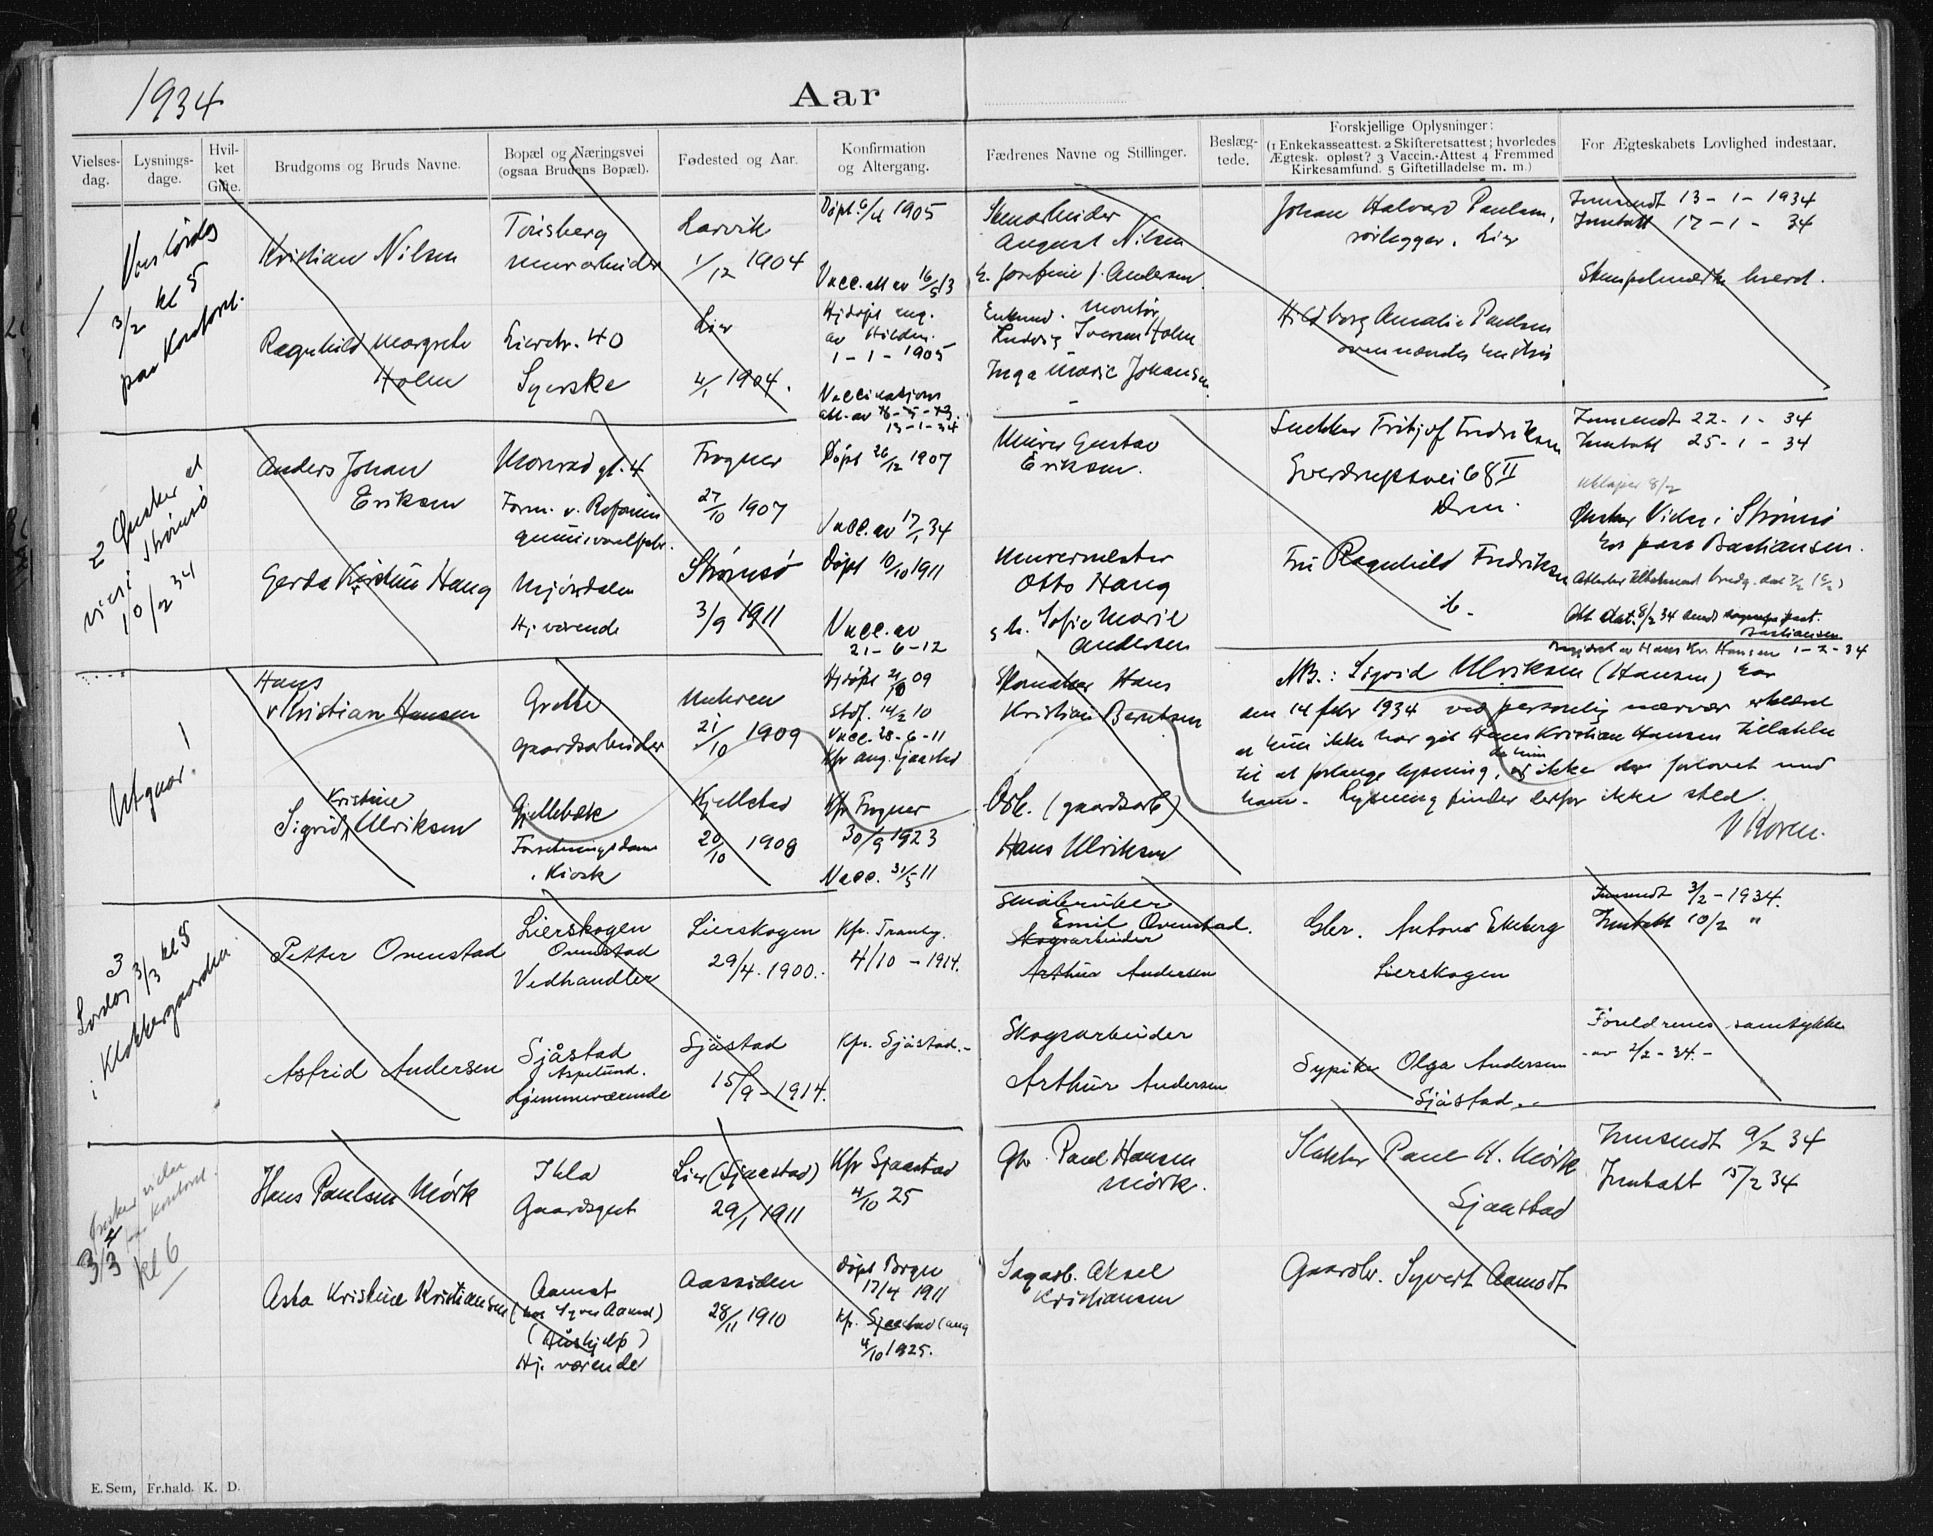 1934
Aar
Vielses-
dag.
Lysnings-
dage.
Hvil-
ket
Gifte.
Brudgoms og Bruds Navne.
Bopæl og Næringsvei
(ogsaa Brudens Bopæl).
Fødested og Aar.
Konfirmation
og Altergang.
Fædrenes Navne og Stillinger.
Beslæg-
tede.
Forskjellige Oplysninger:
(1 Enkekasseattest. 2 Skifteretsattest; hvorledes
Ægtesk. opløst? 3 Vaccin.-Attest 4 Fremmed
Kirkesamfund. 5 Giftetilladelse m. m.)
For Ægteskabets Lovlighed indestaar.
1
3/2 kl 5
paa Kontoret.
Kristian Nilsen
murarbeider
Larvik
1/12 1904
Døpt 6/11 1905
Vacc. att av 16/5 13
August Nilsen
h. Josefine f. Andersen
Johan Halvard Paulsen,
rørlegger, Lier
Innsendt 13-1-1934
Inntatt 17-1-34
Ragnhild Margrete
Holm
Lierstr. 40
Syerske
Lier
4/1 1904.
Hjdøpt
1-1-1905
Vaccinations
att. av
13-1-34
montør
Ludvig Iversen Holm
Inga Marie Johansen
Hildborg Amalie Paulsen
ovennevntes hustru
2 Ønsker at
vies i Strømsø
10/2 34
Anders Johan
Eriksen
Monradgt. 4
Form. v.
Frogner
27/10 1907
Døpt 26/12 1907
Vacc. av 17/1 34
Murer Gustav
Eriksen.
Snekker Fritjof Fredriksen
Sverdrupsvei 68 II
Drm.
Innsendt 22-1-34
Inntatt 25-1-34
8/2
Ønsker Vielse i Strømsø
hos past Bastiansen.
Gerda Kristine Haug
Mjøndalen
Hj. værende
Strømsø
3/9 1911
Døpt 10/10 1911
Vacc. av
21-6-12
Murermester
Otto Haug
h. Sofie Marie
Andersen
Fru Ragnhild Fredriksen
ib.
Att dat. 8/2 34 sendt
Bastiansen
Utgaar!
Hans
Kristian Hansen
Grette
gaardsarbeider
21/10 1909
Hjdøpt 21/10 09
Stdf. 14/2 10
Vacc. 28-6-11
Kfr ang. Sjaastad
Skomaker Hans
Kristian Berntsen
Begjært av Hans Kr. Hansen 1-2-34
NB.: Sigrid Ulriksen (Hansen) har
den 14 febr 1934 ved personlig nærvær erklært
at hun ikke har git Hans Kristian Hansen tillatelse
til at forlange lysning, da hun ikke er forlovet med
ham. Lysning finder derfor ikke sted.
V Koren.
Kristine
Sigrid Ulriksen
Gjellebæk
Forretningsdame
i Kiosk
Kjellstad
20/10 1908
Kfr Frogner
30/9 1923
Vacc. 31/5 11
Arb. (gaardsarb)
Hans Ulriksen
3
Lørdag 3/3 kl 5
i Klokkergaarden
Petter Ovenstad
Lierskogen
Ovenstad
Vedhandler
Lierskogen
29/4. 1900.
Kfr. Tranby.
4/10 - 1914.
Småbruker
Emil Ovenstad.
Skogsarbeider
Arthur Andersen
Gbr. Anton Ekeberg
Lierskogen
Innsendt 3/2 - 1934.
Inntatt 10/2 "
Astrid Andersen
Sjåstad
Aspelund.
Hjemmeværende
Sjåstad
15/9 - 1914.
Kfr. Sjåstad.
Skogsarbeider
Arthur Andersen
Sypike Olga Andersen
Sjåstad.
Foreldrenes samtykke
av 2/2 - 34.
Ønsker vielse
4
paa kontoret.
3/3 kl 6
Hans Paulsen Mørk
Ihla
Gaardsgut
Lier (Sjaastad)
29/1 1911
Kfr Sjaastad
4/10 25
Gbr. Paul Hansen
Mørk.
Klokker Paul H. Mørk
Sjaastad
Innsendt 9/2 34
Inntatt 15/2 34
Asta Kristine Kristiansen
Aamot
(hos Syver Aamot)
(Håshjelp)
Hj. værende
Aassiden
28/11 1910
Døpt Bragn
17/4 1911
Kfr. Sjaastad (ang
4/10 1925.
Sagarb. Aksel
Kristiansen
Gaardbr. Syvert Aamodt
E. Sem, Fr.hald. K. D.